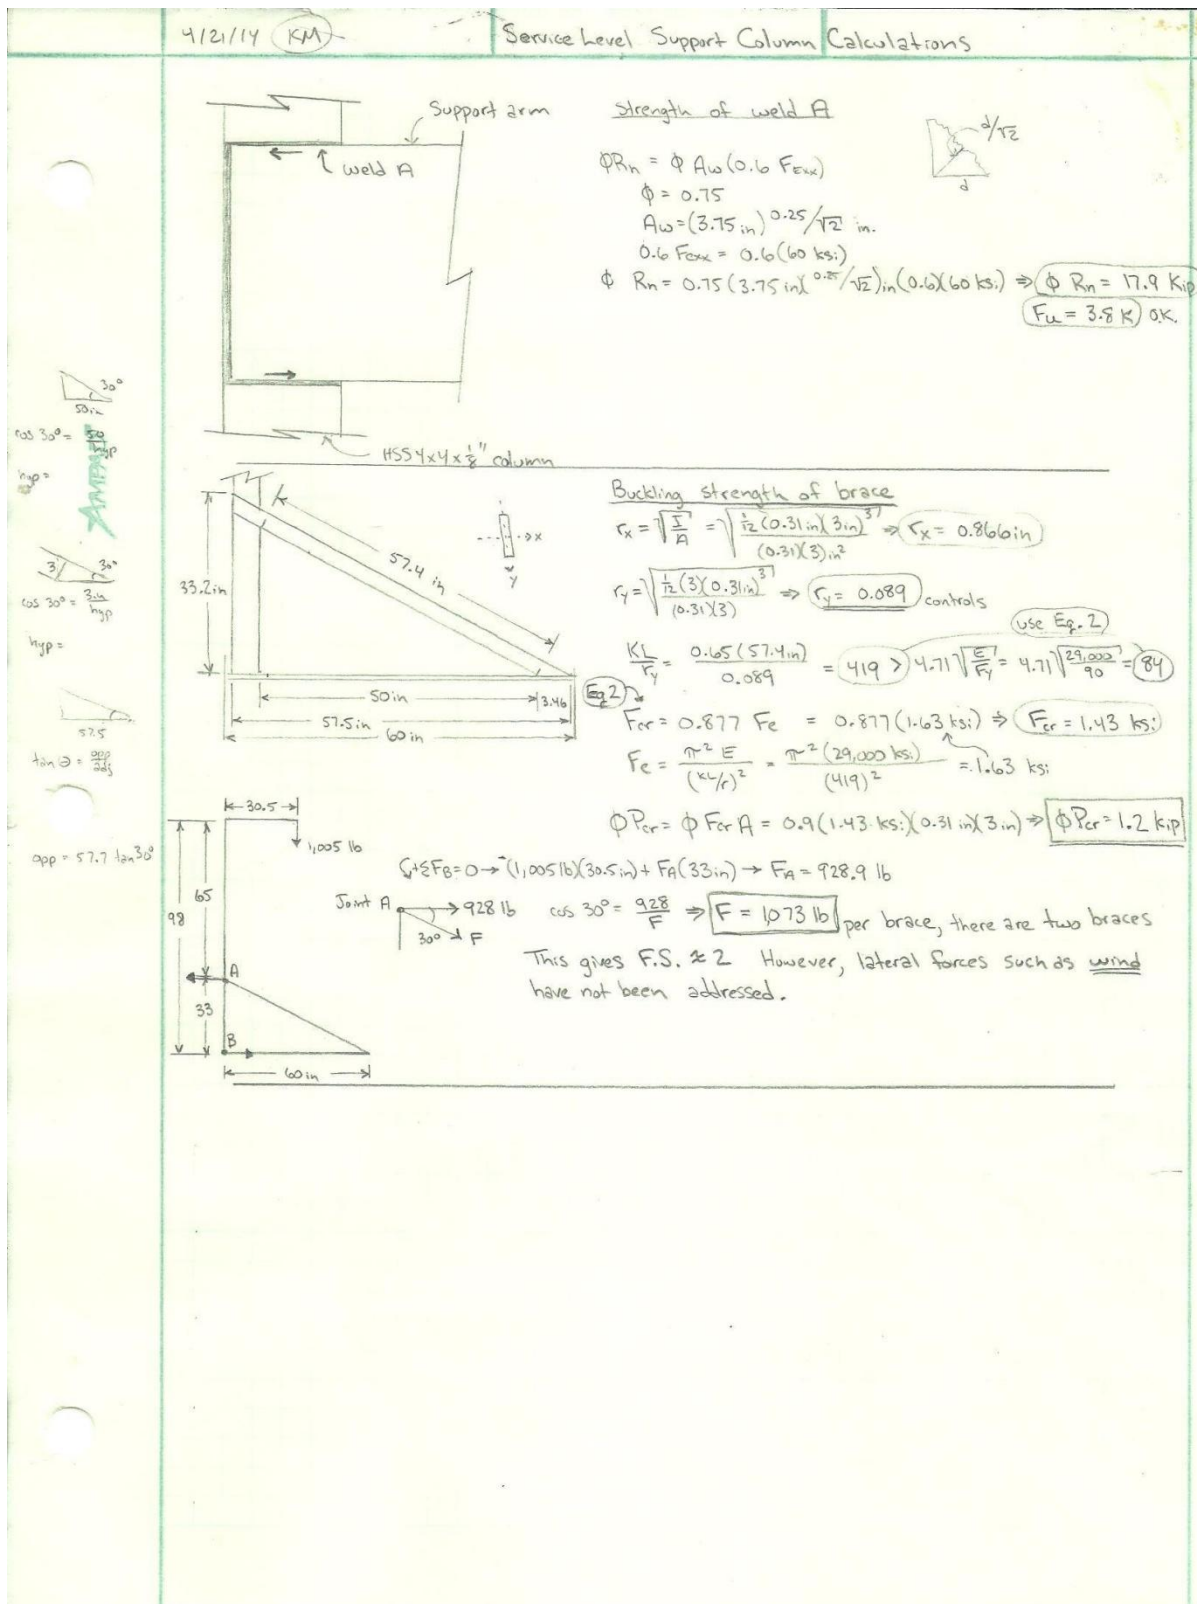 4/21/14 KM
Service Level Support Column Calculations
Support arm
weld A
HSS 4x4x 1/8" column
Strength of weld A
d/√2
d
ΦRn = Φ Aw (0.6 FExx)
Φ = 0.75
Aw = (3.75 in) 0.25/√2 in.
0.6 FExx = 0.6(60 ksi)
Φ Rn = 0.75 (3.75 in)(0.25/√2)in (0.6)(60 ksi) ⇒ Φ Rn = 17.9 Kip
Fu = 3.8 K O.K.
30°
50in
cos 30° = 50/hyp
hyp =
AMPAD
3
30°
cos 30° = 3in/hyp
hyp =
57.5
tan Θ = opp/adj
opp = 57.7 tan 30°
33.2in
57.4 in
x
y
50in
3.46
57.5in
60 in
Buckling strength of brace
rx = √(I/A) = √(1/12 (0.31in)(3in)³/(0.31)(3)in²) ⇒ rx = 0.866in
ry = √(1/12 (3)(0.31in)³/(0.31)(3)) ⇒ ry = 0.089 controls
use Eq. 2
KL/ry = 0.65(57.4in)/0.089 = 419 > 4.71√(E/Fy) = 4.71√(29,000/90) = 84
Eq 2
Fcr = 0.877 Fe = 0.877(1.63 ksi) ⇒ Fcr = 1.43 ksi
Fe = π² E/(KL/r)² = π² (29,000 ksi)/(419)² = 1.63 ksi
ΦPcr = Φ Fcr A = 0.9(1.43 ksi)(0.31 in)(3in) ⇒ ΦPcr = 1.2 kip
30.5
1,005 lb
65
98
33
A
B
60in
+ΣFB=0 → -(1,005lb)(30.5in) + FA(33in) → FA = 928.9 lb
Joint A
928 lb
30°
F
cos 30° = 928/F ⇒ F = 1,073 lb per brace, there are two braces
This gives F.S. ≈ 2 However, lateral forces such as wind
have not been addressed.